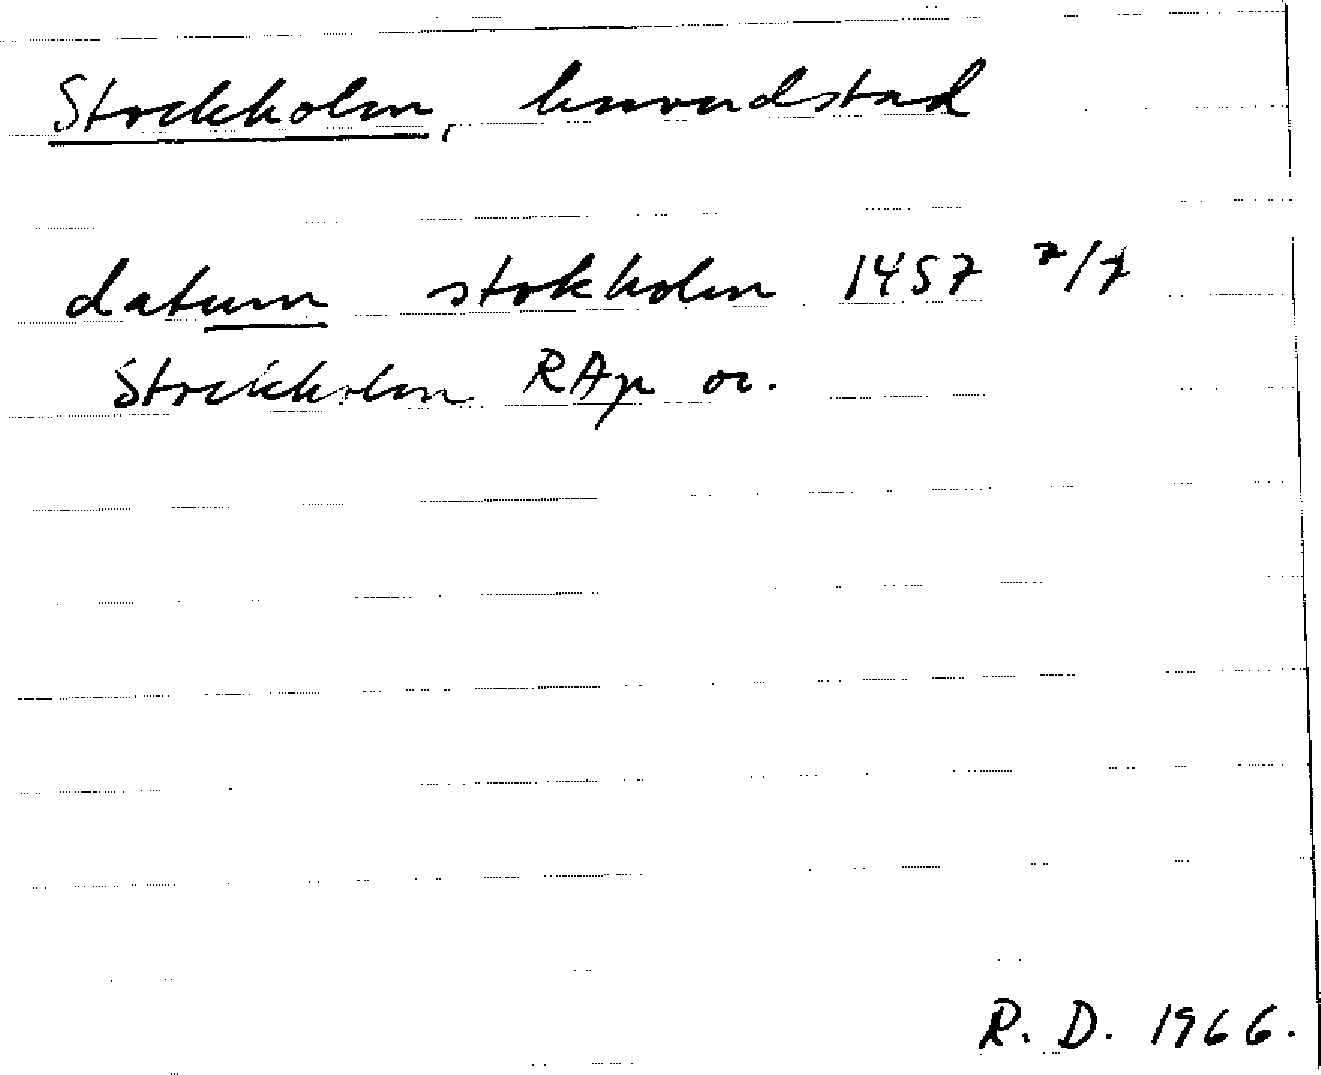 Stockholm, huvudstad
datum stokholm 1457 7/7
Stockholm RAp or.
R. D. 1966.